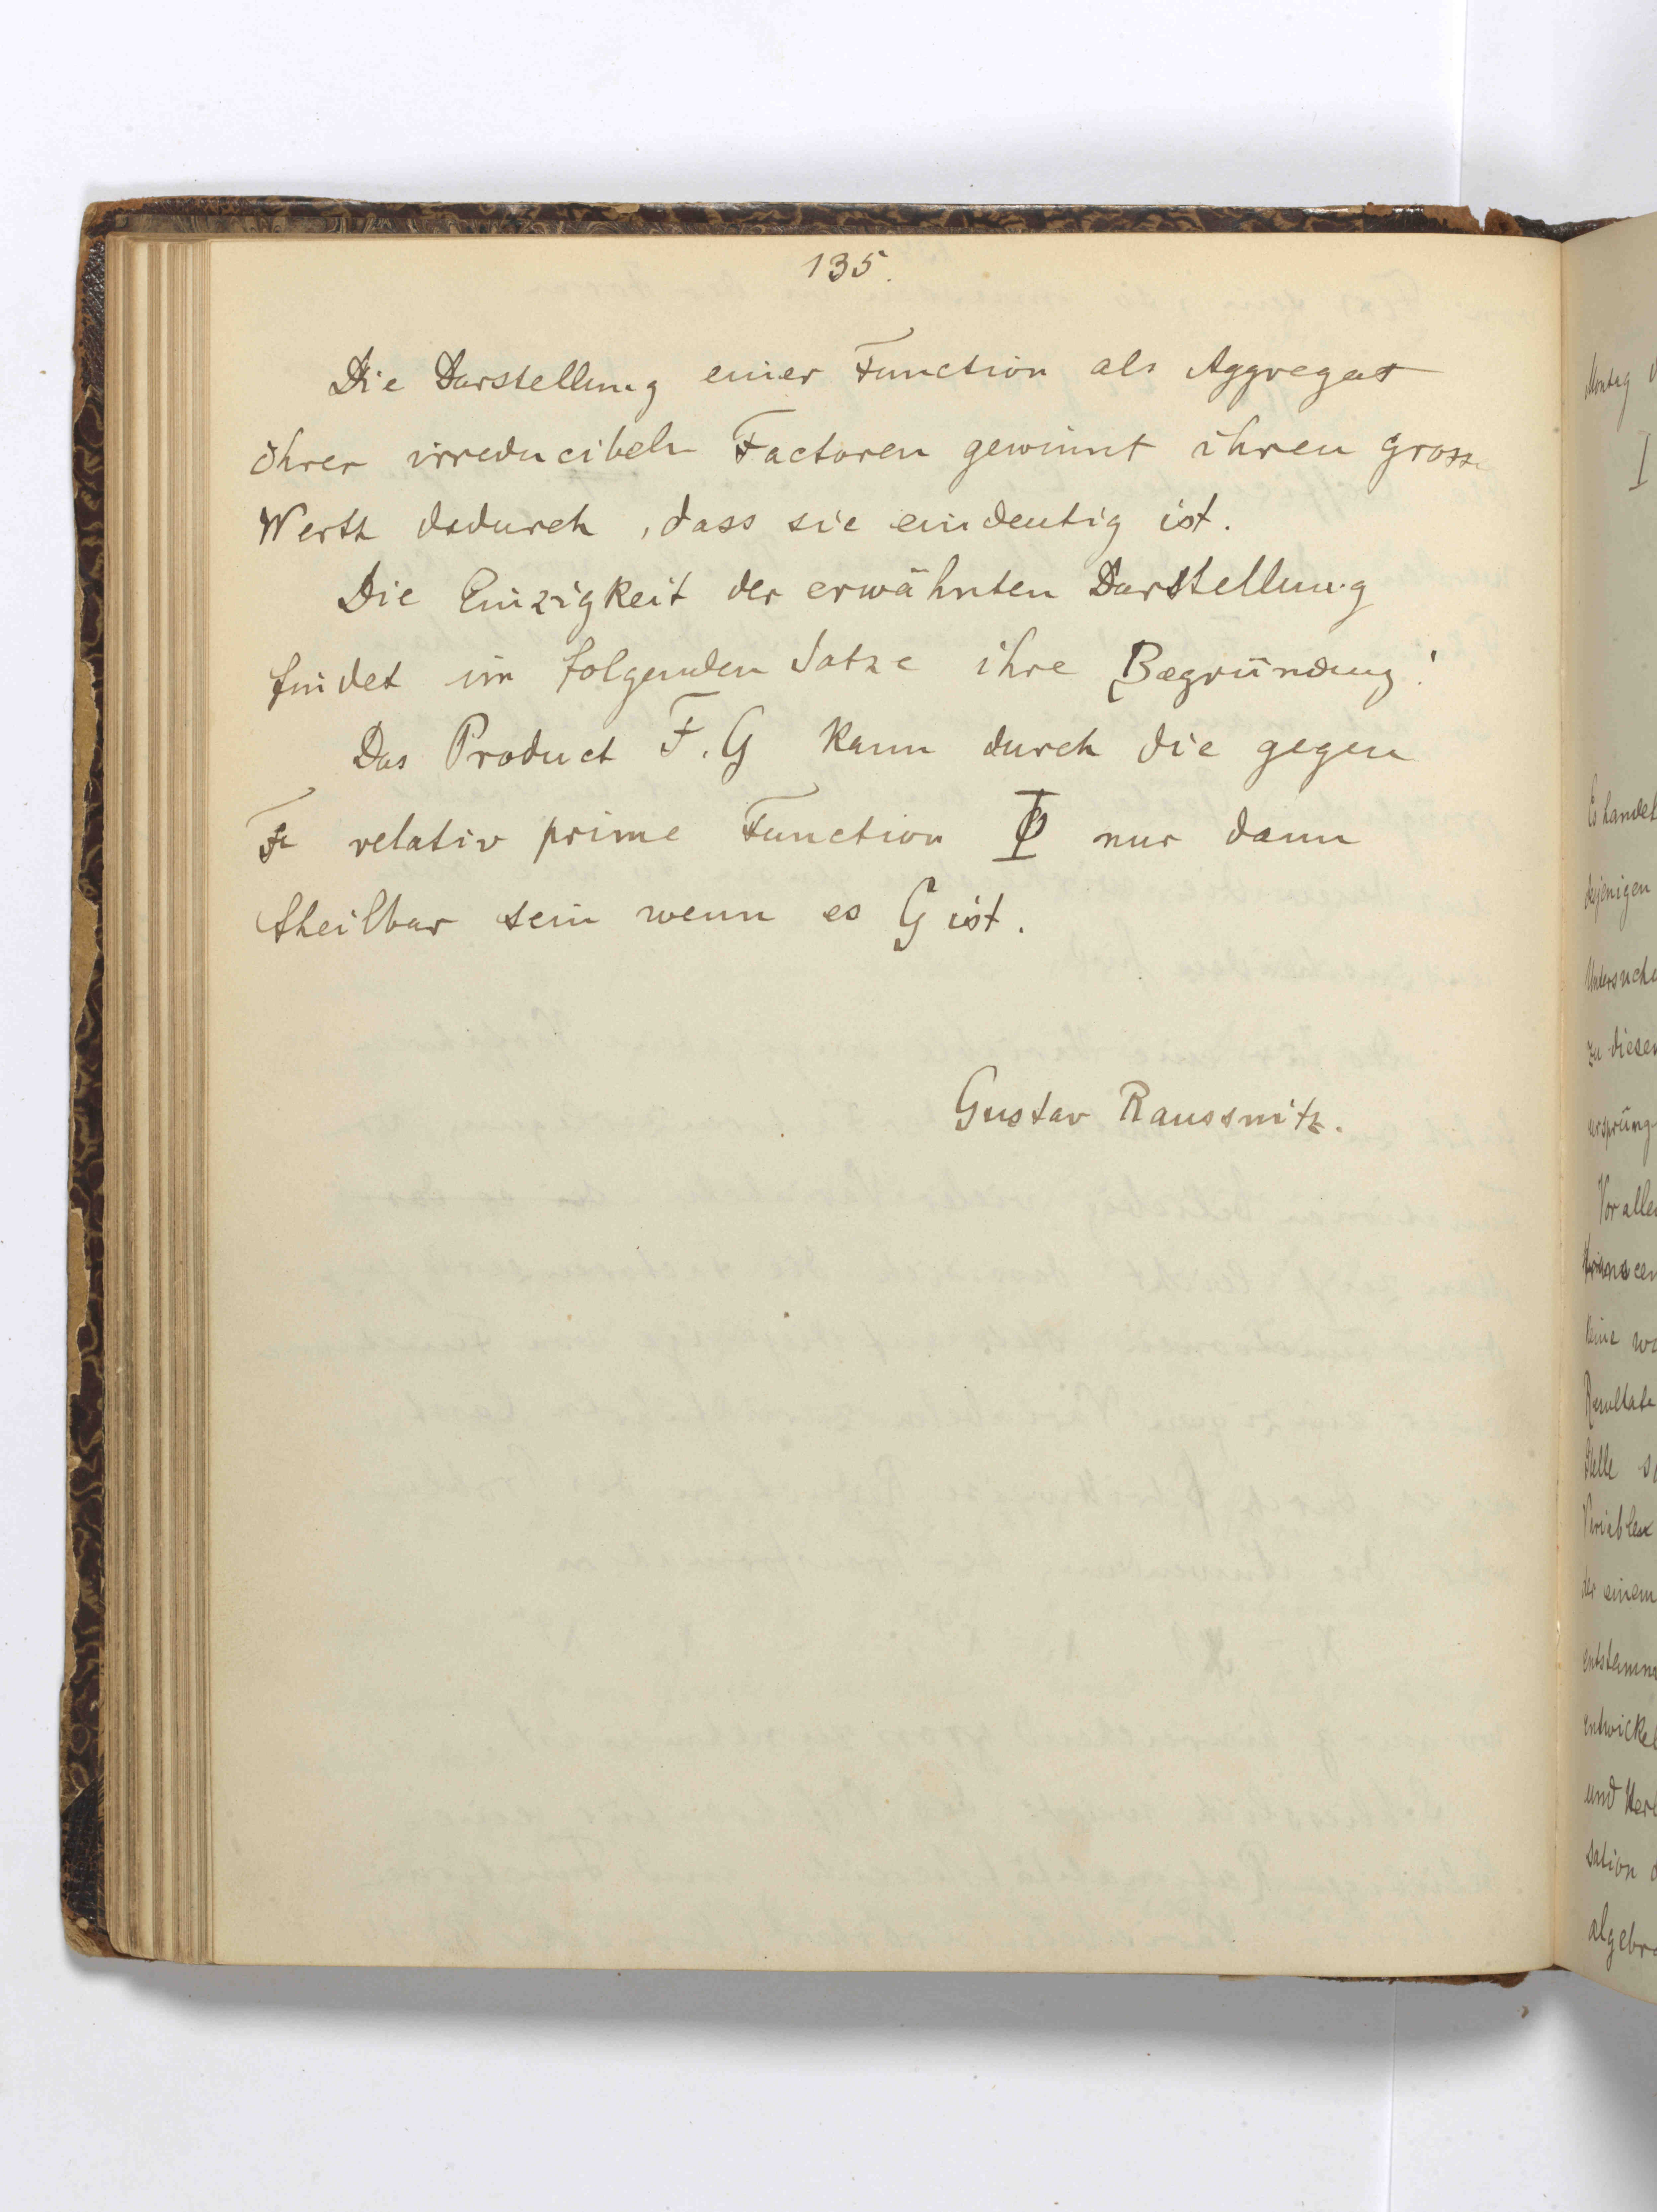 135.
Die Darstellung einer Function als Aggregat
ihrer irreducibeln Factoren gewinnt ihren gross
Werth dadurch, dass sie eindeutig ist.
Die Einzigkeit der erwähnten Darstellung
findet im folgenden Satze ihre Begründung:
Das Product F. G kann durch die gegen
F relativ prime Function Φ nur dann
theilbar sein wenn es G ist.
Gustav Raussnitz.
Montag
I
Es handel
desjenigen
Untersuch
zu diesen
ursprüng
Vor alle
keine
Resultate
Stelle
der einem
entstamm
entwickel
und
sation
algebra